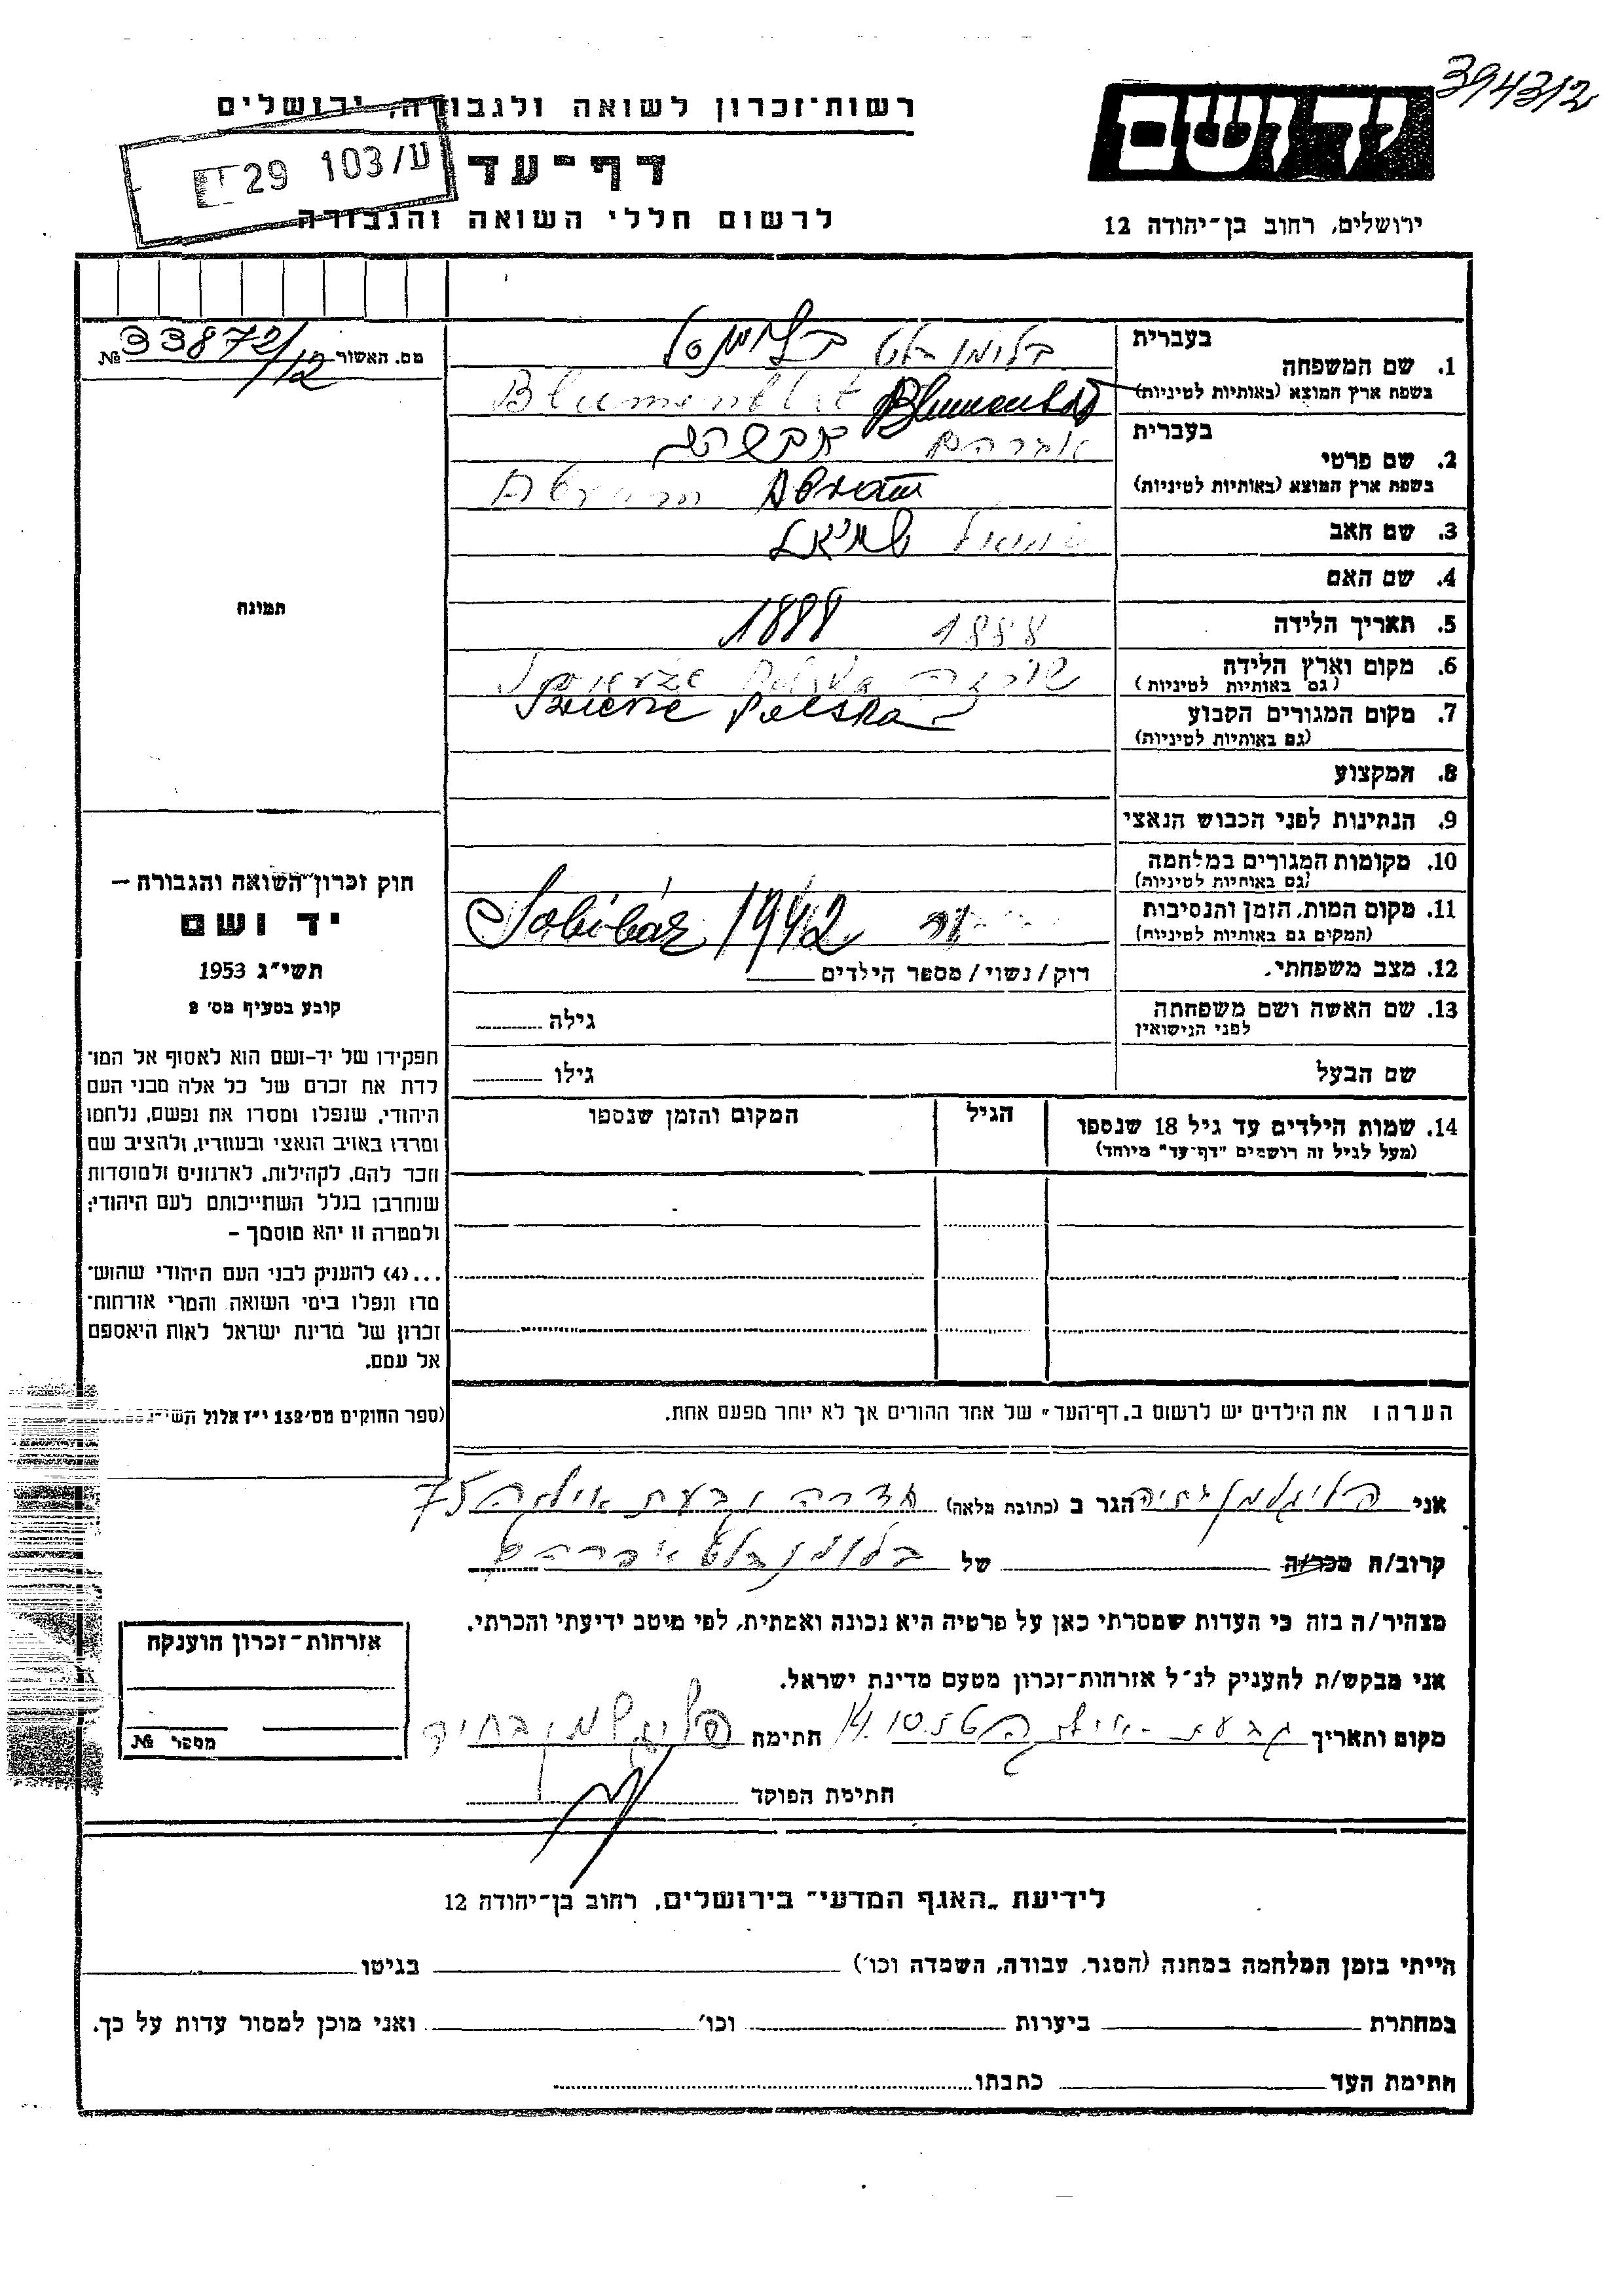 394312
רשות־זכרון לשואה ולגבורה, ירושלים
ע/103 29
דף־עד
לרשום חללי השואה והגבורה
יד ושם
ירושלים, רחוב בן־יהודה 12
מס. האשור 33872/12 №
תמונה
1. שם המשפחה בעברית בלומנבלט
בשפת ארץ המוצא (באותיות לטיניות) Blumenblat
2. שם פרטי בעברית אברהם
בשפת ארץ המוצא (באותיות לטיניות) Abram
3. שם האב שמואל שמואל
4. שם האם
5. תאריך הלידה 1888 1888
6. מקום וארץ הלידה
(גם באותיות לטיניות) Polska
7. מקום המגורים הקבוע
(גם באותיות לטיניות) Polska
8. המקצוע
9. הנתינות לפני הכבוש הנאצי
10. מקומות המגורים במלחמה
(גם באותיות לטיניות)
11. מקום המות, הזמן והנסיבות
(המקום גם באותיות לטיניות) Sobibór 1942
12. מצב משפחתי. רוק/נשוי/מספר הילדים
13. שם האשה ושם משפחתה
לפני הנישואין גילה
שם הבעל גילו
14. שמות הילדים עד גיל 18 שנספו
(מעל לגיל זה רושמים "דף־עד" מיוחד)
הגיל
המקום והזמן שנספו
הערה: את הילדים יש לרשום ב„דף־העד" של אחד ההורים אך לא יותר מפעם אחת.
חוק זכרון השואה והגבורה –
יד ושם
תשי"ג 1953
קובע בסעיף מס' 2
תפקידו של יד-ושם הוא לאסוף אל המו־
לדת את זכרם של כל אלה מבני העם
היהודי, שנפלו ומסרו את נפשם, נלחמו
ומרדו באויב הנאצי ובעוזריו, ולהציב שם
וזכר להם, לקהילות, לארגונים ולמוסדות
שנחרבו בגלל השתייכותם לעם היהודי;
ולמטרה זו יהא מוסמך –
...(4) להעניק לבני העם היהודי שהוש־
מדו ונפלו בימי השואה והמרי אזרחות־
זכרון של מדינת ישראל לאות היאספם
אל עמם.
(ספר החוקים מס' 132 י"ז אלול תשי"ג
אני הגר ב (כתובת מלאה) חדרה גבעת אולגה 75
קרוב/ה מכר/ה של בלומנבלט אברהם
מצהיר/ה בזה כי העדות שמסרתי כאן על פרטיה היא נכונה ואמתית, לפי מיטב ידיעתי והכרתי.
אני מבקש/ת להעניק לנ"ל אזרחות־זכרון מטעם מדינת ישראל.
מקום ותאריך גבעת אולגה 14.10.56 חתימה
חתימת הפוקד
אזרחות־זכרון הוענקה
מספר №
לידיעת „האגף המדעי" בירושלים, רחוב בן־יהודה 12
הייתי בזמן המלחמה במחנה (הסגר, עבודה, השמדה וכו') בגיטו
במחתרת ביערות וכו' ואני מוכן למסור עדות על כך.
חתימת העד כתבתו